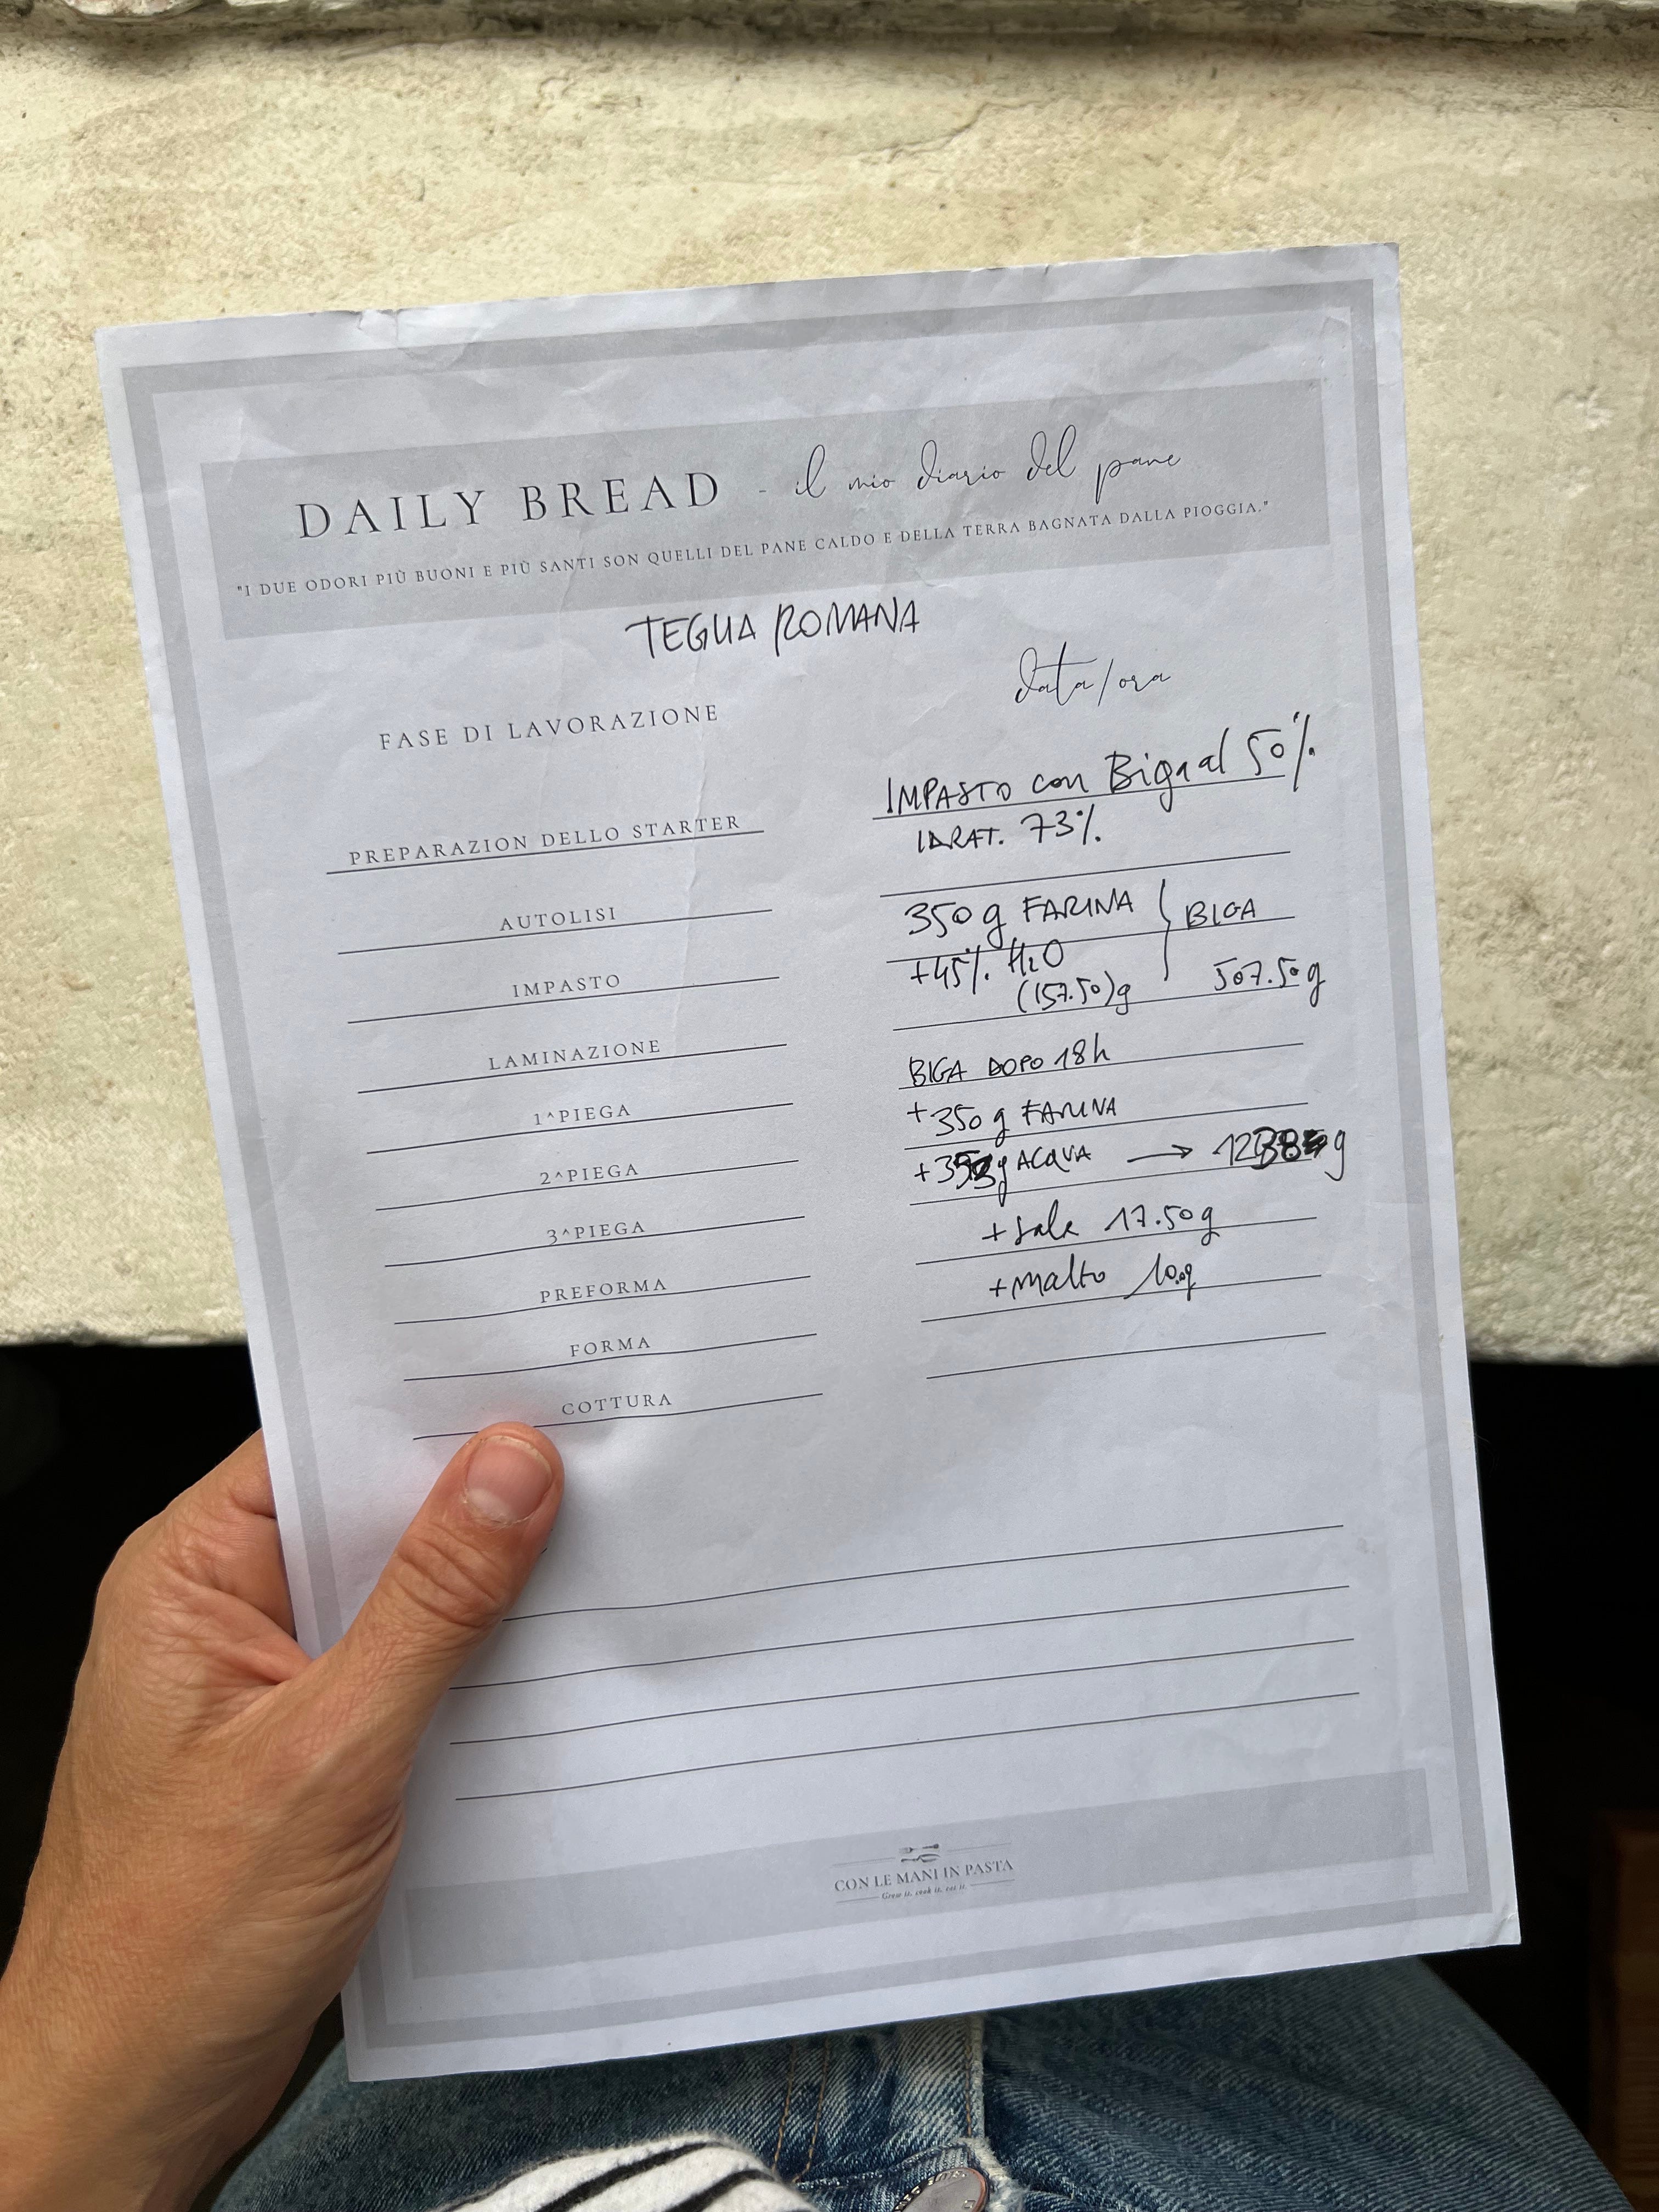 DAILY BREAD - il mio diario del pane
"I DUE ODORI PIÙ BUONI E PIÙ SANTI SON QUELLI DEL PANE CALDO E DELLA TERRA BAGNATA DALLA PIOGGIA."
TEGLIA ROMANA
FASE DI LAVORAZIONE
PREPARAZION DELLO STARTER
AUTOLISI
IMPASTO
LAMINAZIONE
1^PIEGA
2^PIEGA
3^PIEGA
PREFORMA
FORMA
COTTURA
data/ora
IMPASTO con Biga al 50%
IDRAT. 73%
350 g FARINA } BIGA
+45% H2O
(157.50)g 507.50 g
BIGA DOPO 18h
+350 g FARINA
g ACQUA → g
+ sale 17.50g
+ malto 10g
CON LE MANI IN PASTA
Grow it, cook it, eat it.